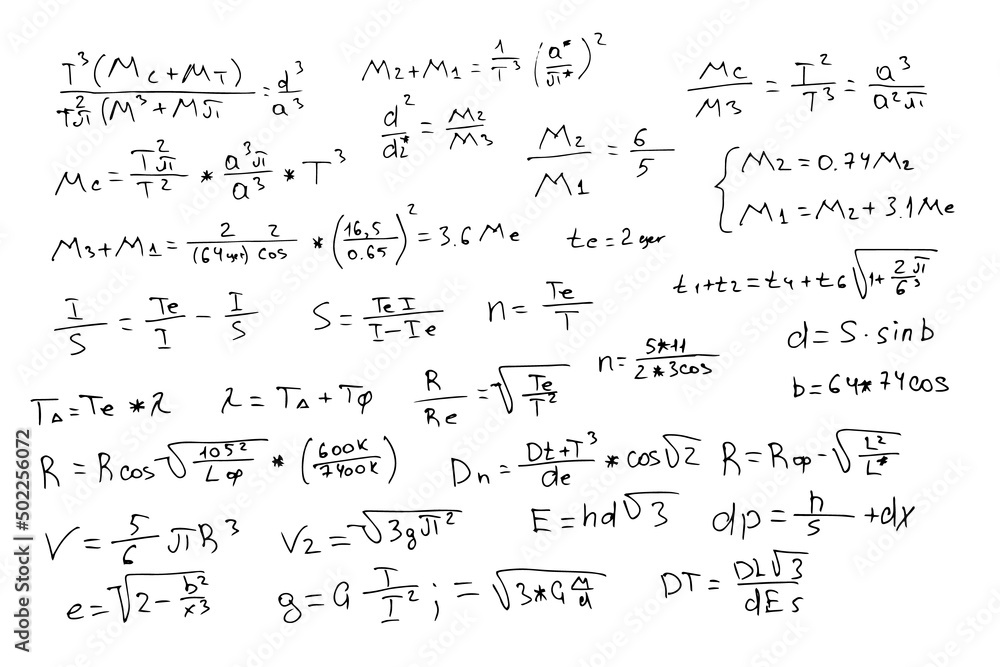 T³(Mc+MT) / T²π(M³+Mπ = d³/a³
M2+M1 = 1/T³ (a*/π*)²
Mc/M3 = T²/T³ = a³/a²π
d²/d2* = M2/M3
Mc = T²π/T² * a³π/a³ * T³
M2/M1 = 6/5
{ M2 = 0.74M2
M1 = M2 + 3.1Me
M3+M1 = 2 2/(64yer) cos * (16,5/0.65)² = 3.6 Me
te = 2 yer
t1+t2 = t4+t6 √1+ 2π/6³
I/S = Te/I - I/S
S = Te I/I-Ie
n = Te/T
d = S · sinb
n = 5*11/2*3cos
b = 64*74cos
TΔ = Te * λ
λ = TΔ + Tφ
R/Re = √Te/T²
R = Rcos √105²/Lφ * (600K/7400K)
Dn = Dt+T³/de * cos√2
R = Rφ - √L²/L*
V = 5/6 πR³
V2 = √3gπ²
E = hd√3
dp = h/s + dx
e = √2 - b²/x3
g = G T/I² ; = √3*G M/d
DT = DL√3/dEs
Adobe Stock | #502256072
Adobe Stock